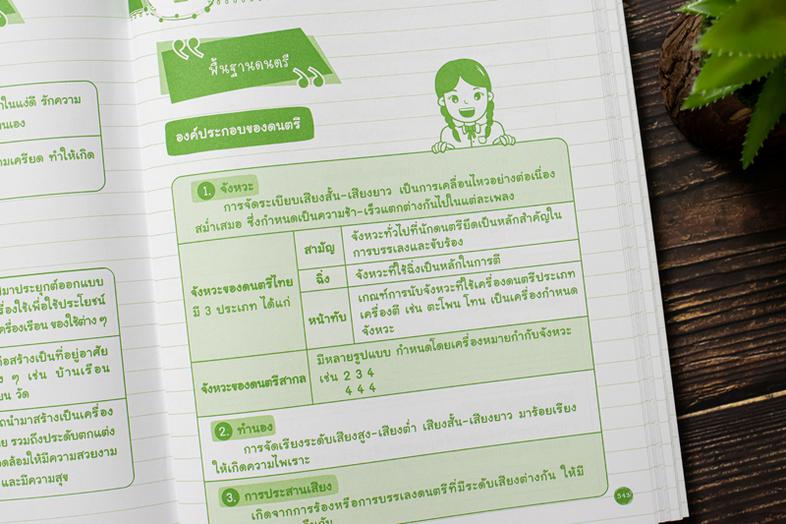 ในแง่ดี รักความ
ตนเอง
มเครียด ทำให้เกิด
มาประยุกต์ออกแบบ
องใช้เพื่อใช้ประโยชน์
เครื่องเรือน ของใช้ต่าง ๆ
่อสร้างเป็นที่อยู่อาศัย
ง ๆ เช่น บ้านเรือน
ยน วัด
ถนำมาสร้างเป็นเครื่อง
ย รวมถึงประดับตกแต่ง
ดล้อมให้มีความสวยงาม
และมีความสุข
พื้นฐานดนตรี
องค์ประกอบของดนตรี
1. จังหวะ
การจัดระเบียบเสียงสั้น-เสียงยาว เป็นการเคลื่อนไหวอย่างต่อเนื่อง
สม่ำเสมอ ซึ่งกำหนดเป็นความช้า-เร็วแตกต่างกันไปในแต่ละเพลง
จังหวะของดนตรีไทย
มี 3 ประเภท ได้แก่
สามัญ
จังหวะทั่วไปที่นักดนตรียึดเป็นหลักสำคัญใน
การบรรเลงและขับร้อง
ฉิ่ง
จังหวะที่ใช้ฉิ่งเป็นหลักในการตี
หน้าทับ
เกณฑ์การนับจังหวะที่ใช้เครื่องดนตรีประเภท
เครื่องตี เช่น ตะโพน โทน เป็นเครื่องกำหนด
จังหวะ
จังหวะของดนตรีสากล
มีหลายรูปแบบ กำหนดโดยเครื่องหมายกำกับจังหวะ
เช่น 2 3 4
4 4 4
2. ทำนอง
การจัดเรียงระดับเสียงสูง-เสียงต่ำ เสียงสั้น-เสียงยาว มาร้อยเรียง
ให้เกิดความไพเราะ
3. การประสานเสียง
เกิดจากการร้องหรือการบรรเลงดนตรีที่มีระดับเสียงต่างกัน ให้มี
543